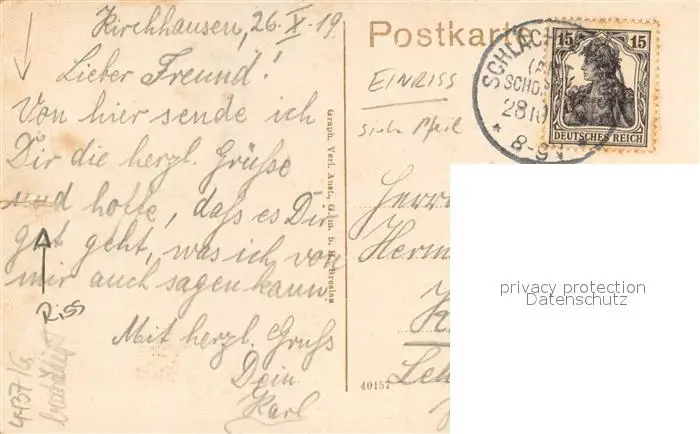 Kirchhausen, 26.X.19
Lieber Freund!
Von hier sende ich
Dir die herzl. Grüße
und hoffe, dass es Dir
gut geht, was ich von
mir auch sagen kann.
Mit herzl. Gruss
Dein
Karl
Riss
4437/G
Graph. Verl. Anst., G. m. b. H. Breslau
40157
Postkarte
EINRISS
siehe Pfeil
SCHLACH
2810
8-9
15 15
DEUTSCHES REICH
Herrn
Herm
privacy protection
Datenschutz